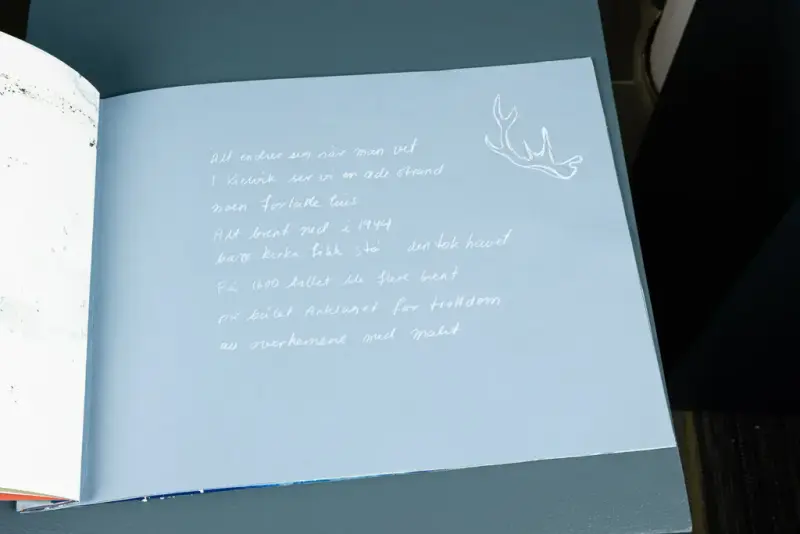 Alt endrer seg når man vet
I Kiervik ser vi en øde strand
noen forlatte hus
Alt brent ned i 1944
bare kirka fikk stå den tok havet
På 1600 tallet ble flere brent
på bålet Anklaget for trolldom
av overherrene med makt